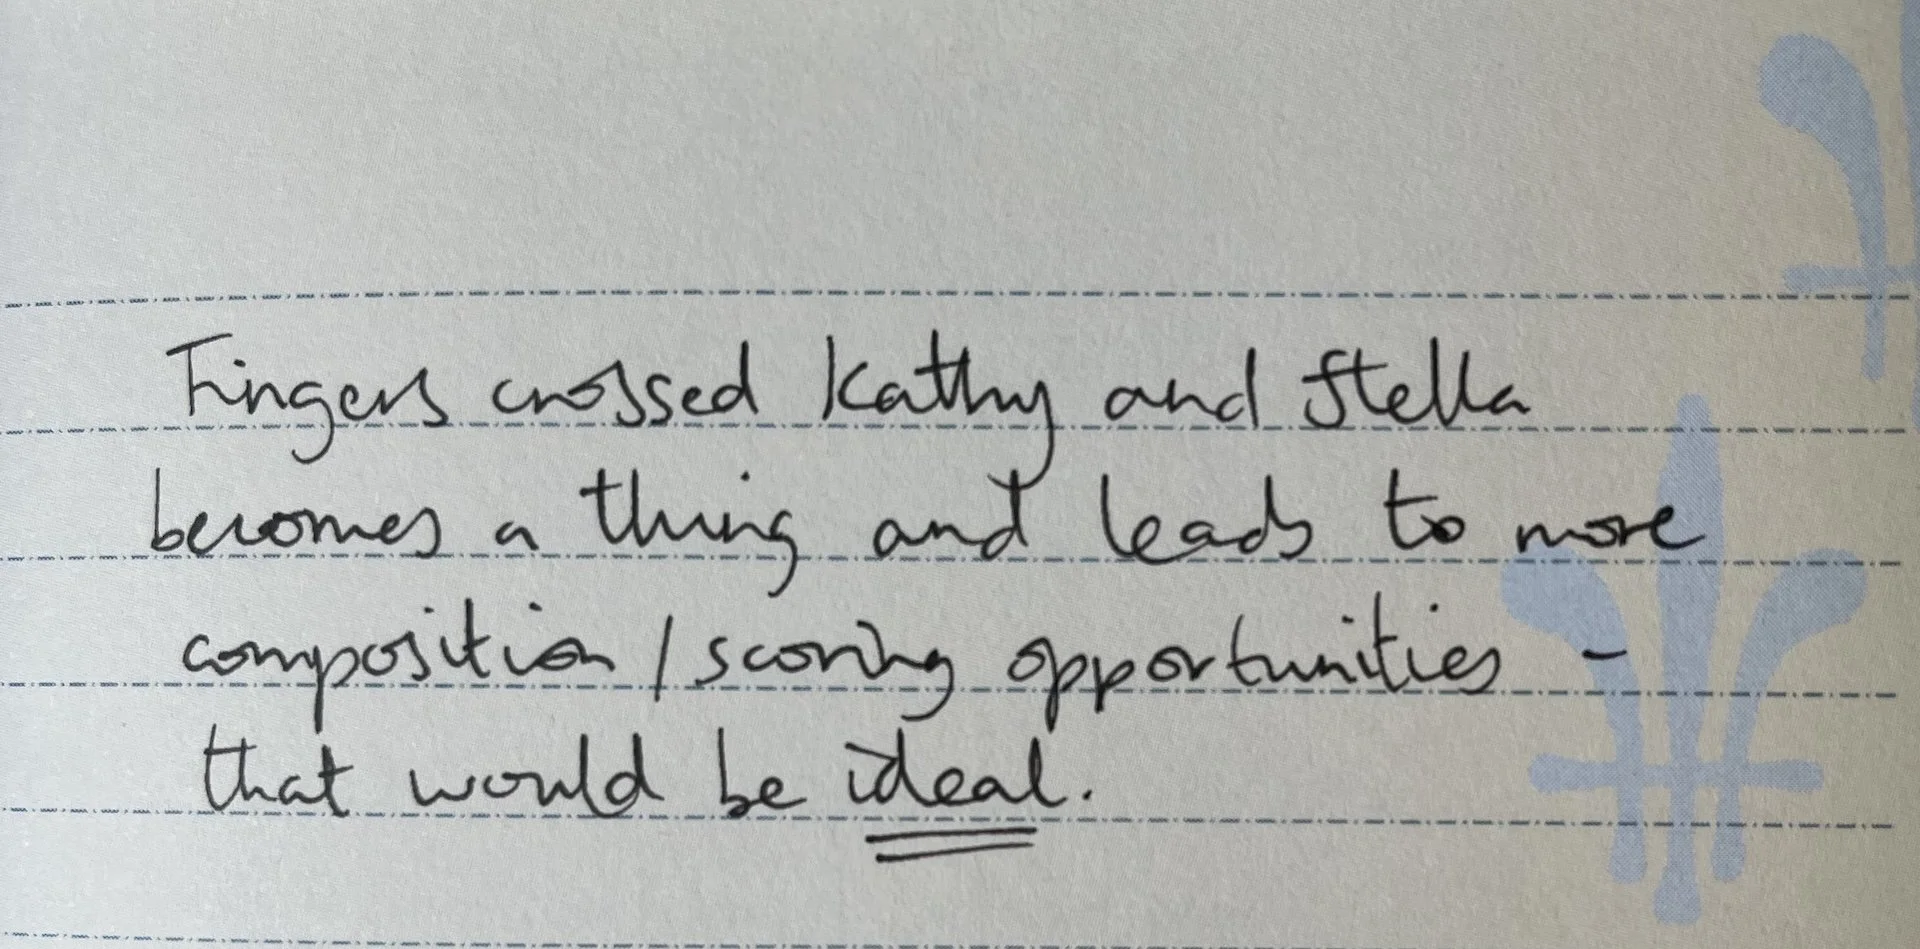 Fingers crossed Kathy and Stella
becomes a thing and leads to more
composition / scoring opportunities -
that would be ideal.